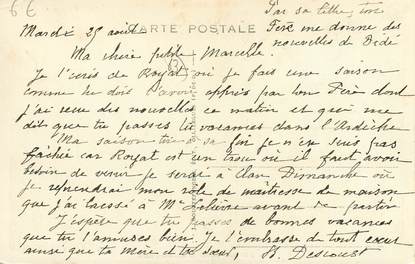 6€
Par sa lettre, ton
Mardi 25 août
CARTE POSTALE
Frère me donne des
nouvelles de Dédé
Ma chère petite Marcelle.
Je t'écris de Royat où je fais une saison
comme tu dois l'avoir appris par ton Frère dont
j'ai reçu des nouvelles ce matin et qui me
dit que tu passes tes vacances dans l'Ardèche
Ma saison tire à sa fin je n'en suis pas
fâchée car Royat est un trou où il faut avoir
besoin de venir je serai à Dimanche où
je reprendrai mon rôle de maitresse de maison
que j'ai laissé à Mme avant de partir
J'espère que tu passes de bonnes vacances
que tu t'amuses bien. Je t'embrasse de tout cœur
ainsi que ta Mère et ta Sœur,